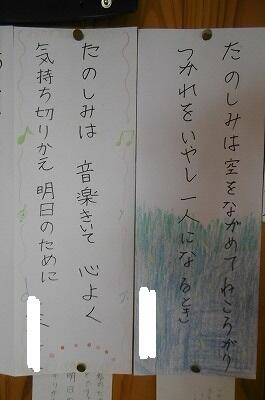 たのしみは空をながめてねころがり
つかれをいやし一人になるとき
たのしみは 音楽きいて 心よく
気持ち切りかえ 明日のために